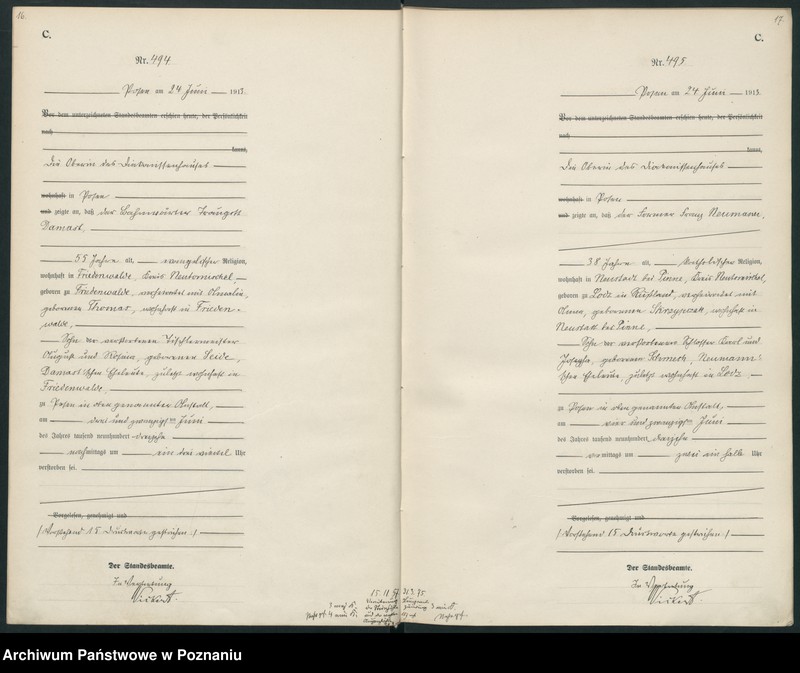 16
C.
Nr. 494
Posen am 24 Juni 1913.
Vor dem unterzeichneten Standesbeamten erschien heute, der Persönlichkeit
nach
kannt,
die Oberin des Diakonissenhauses
wohnhaft in Posen
und zeigte an, daß der Bahnwärter Traugott
Damast,
55 Jahre alt, evangelischer Religion,
wohnhaft in Friedenwalde, Kreis Neutomischel,
geboren zu Friedenwalde, verheiratet mit
geborenen Thomas, wohnhaft in Frieden-
walde,
Sohn der verstorbenen Tischlermeister
August und Rosina, geborenen Seide,
Damast'schen Eheleute, zuletzt wohnhaft in
Friedenwalde,
zu Posen in oben genannter Anstalt,
am drei und zwanzigsten Juni
des Jahres tausend neunhundert dreizehn
nachmittags um ein drei viertel Uhr
verstorben sei.
Vorgelesen, genehmigt und
(Vorstehend 15 Druckworte gestrichen.)
Der Standesbeamte.
In Vertretung
17
C.
Nr. 495
Posen am 24 Juni 1913.
Vor dem unterzeichneten Standesbeamten erschien heute, der Persönlichkeit
nach
kannt,
die Oberin des Diakonissenhauses
wohnhaft in Posen
und zeigte an, daß der Franz Neumann,
38 Jahre alt, katholischer Religion,
wohnhaft in Neustadt bei Pinne, Kreis Neutomischel,
geboren zu Lodz in Rußland, verheiratet mit
geborenen wohnhaft in
Neustadt bei Pinne,
Sohn der verstorbenen Schlosser Karl und
Josepha, geborenen Neumann-
schen Eheleute, zuletzt wohnhaft in Lodz
zu Posen in oben genannter Anstalt,
am vier und zwanzigsten Juni
des Jahres tausend neunhundert dreizehn
vormittags um zwei ein halb Uhr
verstorben sei.
Vorgelesen, genehmigt und
(Vorstehend 15 Druckworte gestrichen.)
Der Standesbeamte.
In Vertretung
Archiwum Państwowe w Poznaniu